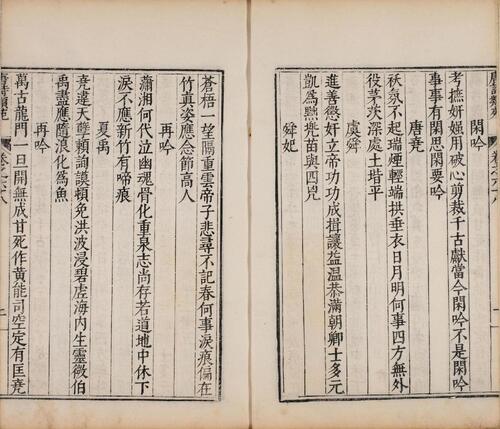 閑吟
考撫妍媸用破心剪裁千古獻當今閑吟不是閑吟
事事有閑思閑要吟
唐堯
祅氛不起瑞煙輕端拱垂衣日月明何事四方無外
役茅茨深處土堦平
虞舜
進善懲奸立帝功功成揖讓益温恭滿朝卿士多元
凱爲黜兠苗與四㐫
舜妃
蒼梧一望隔重雲帝子悲尋不記春何事淚痕偏在
竹貞姿應念節高人
再吟
瀟湘何代泣幽魂骨化重泉志尚存若道地中休下
淚不應新竹有啼痕
夏禹
堯違天孽賴詢謨頓免洪波浸碧虛海内生靈微伯
禹盡應隨浪化爲魚
再吟
萬古龍門一旦開無成甘死作黄能司空定有匡堯